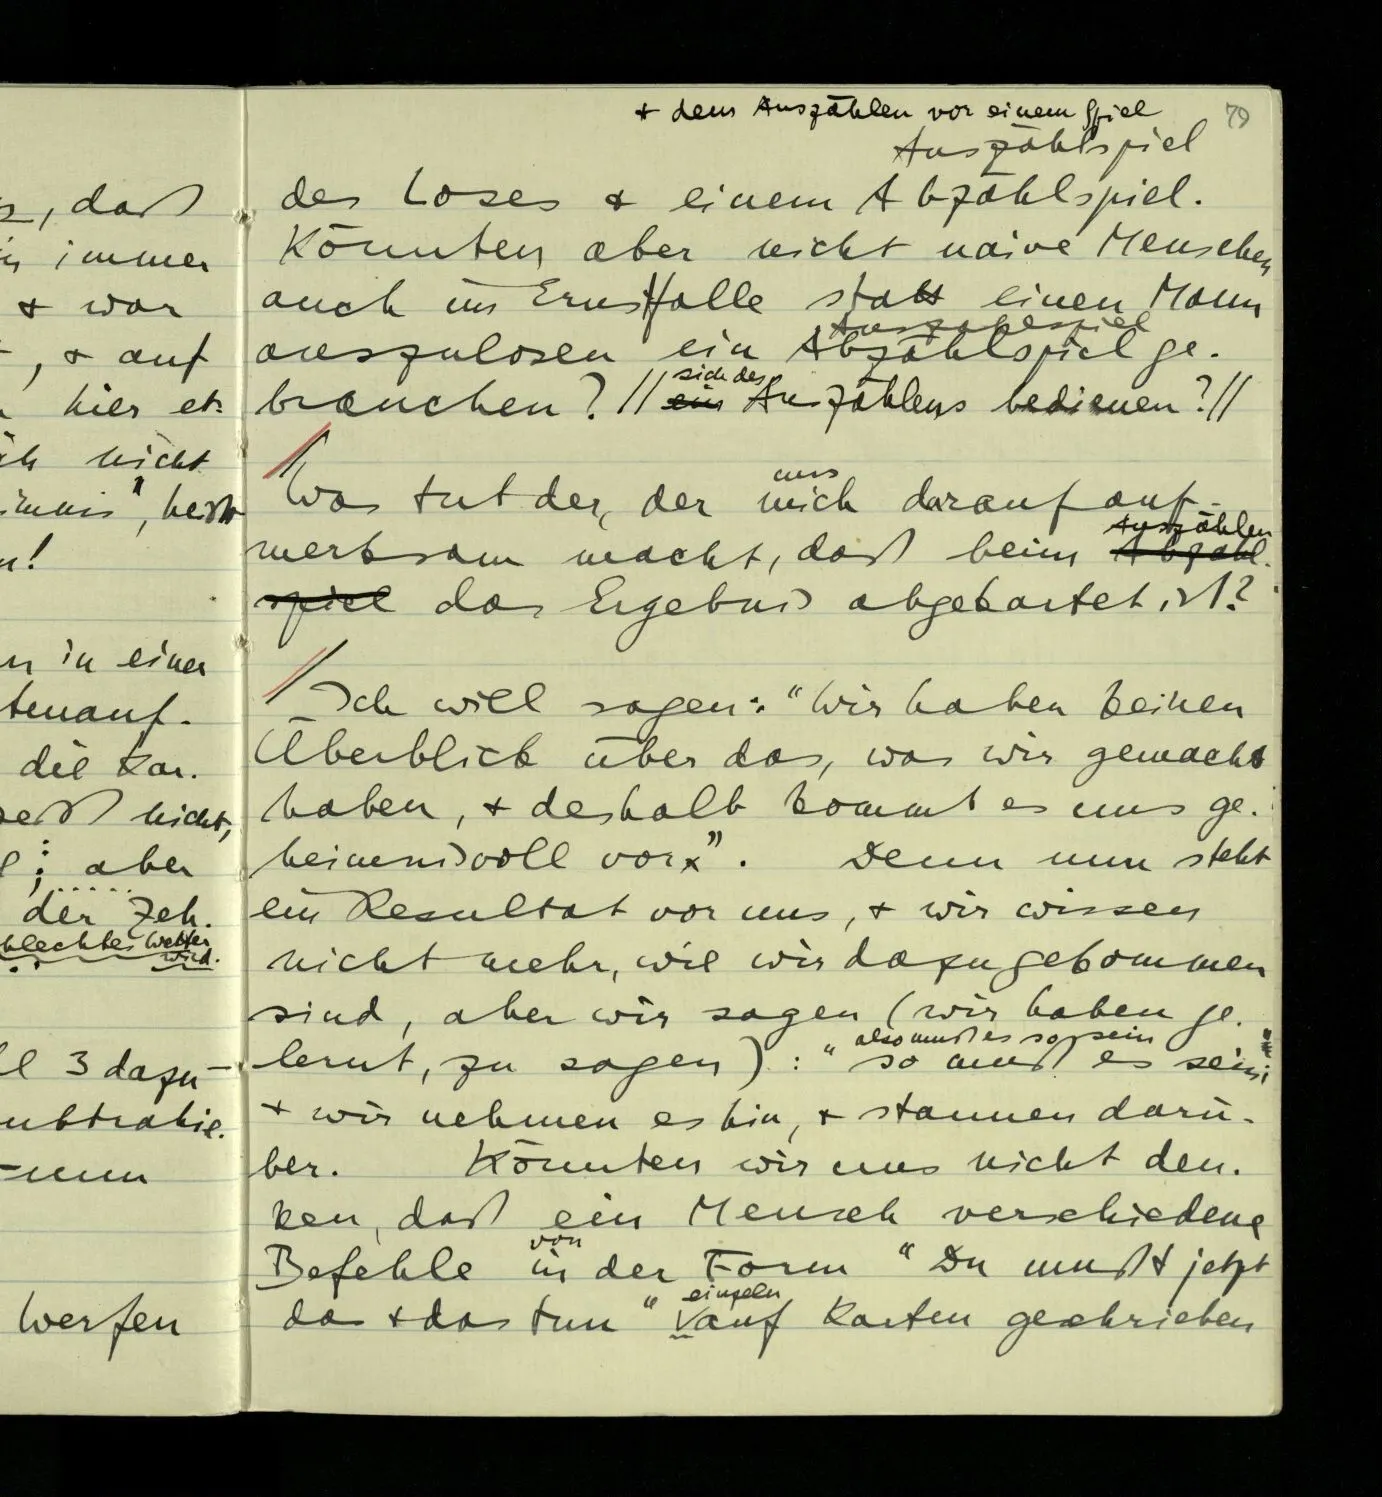 & dem Auszählen vor einem Spiel
79
Auszählspiel
des Loses & einem Abzählspiel.
Könnten aber nicht naive Menschen
auch im Ernstfalle statt einen Mann
Auszählspiel
auszulosen ein Abzählspiel ge-
sich des
brauchen? // ein Auszählens bedienen? //
uns
Was tut der, der mich darauf auf-
Auszählen
merksam macht, daß beim Abzähl-
spiel das Ergebnis abgekartet ist?
Ich will sagen: "Wir haben keinen
Überblick über das, was wir gemacht
haben, & deshalb kommt es uns ge-
heimnisvoll vor". Denn nun steht
ein Resultat vor uns, & wir wissen
nicht mehr, wie wir dazu gekommen
sind, aber wir sagen (wir haben ge-
also muß es so sein
lernt, zu sagen): "so muß es sein"
& wir nehmen es hin, & staunen darü-
ber. Könnten wir uns nicht den-
ken, daß ein Mensch verschiedene
von
Befehle in der Form "Du mußt jetzt
einzeln
das & das tun" auf Karten geschrieben
, daß
immer
& war
, & auf
hier et-
nicht
", heißt
n!
in einer
tenauf-
die Kar-
nicht,
; aber
der Zeh-
schlechtes Wetter
wird.
3 dazu-
ubtrahie-
werfen